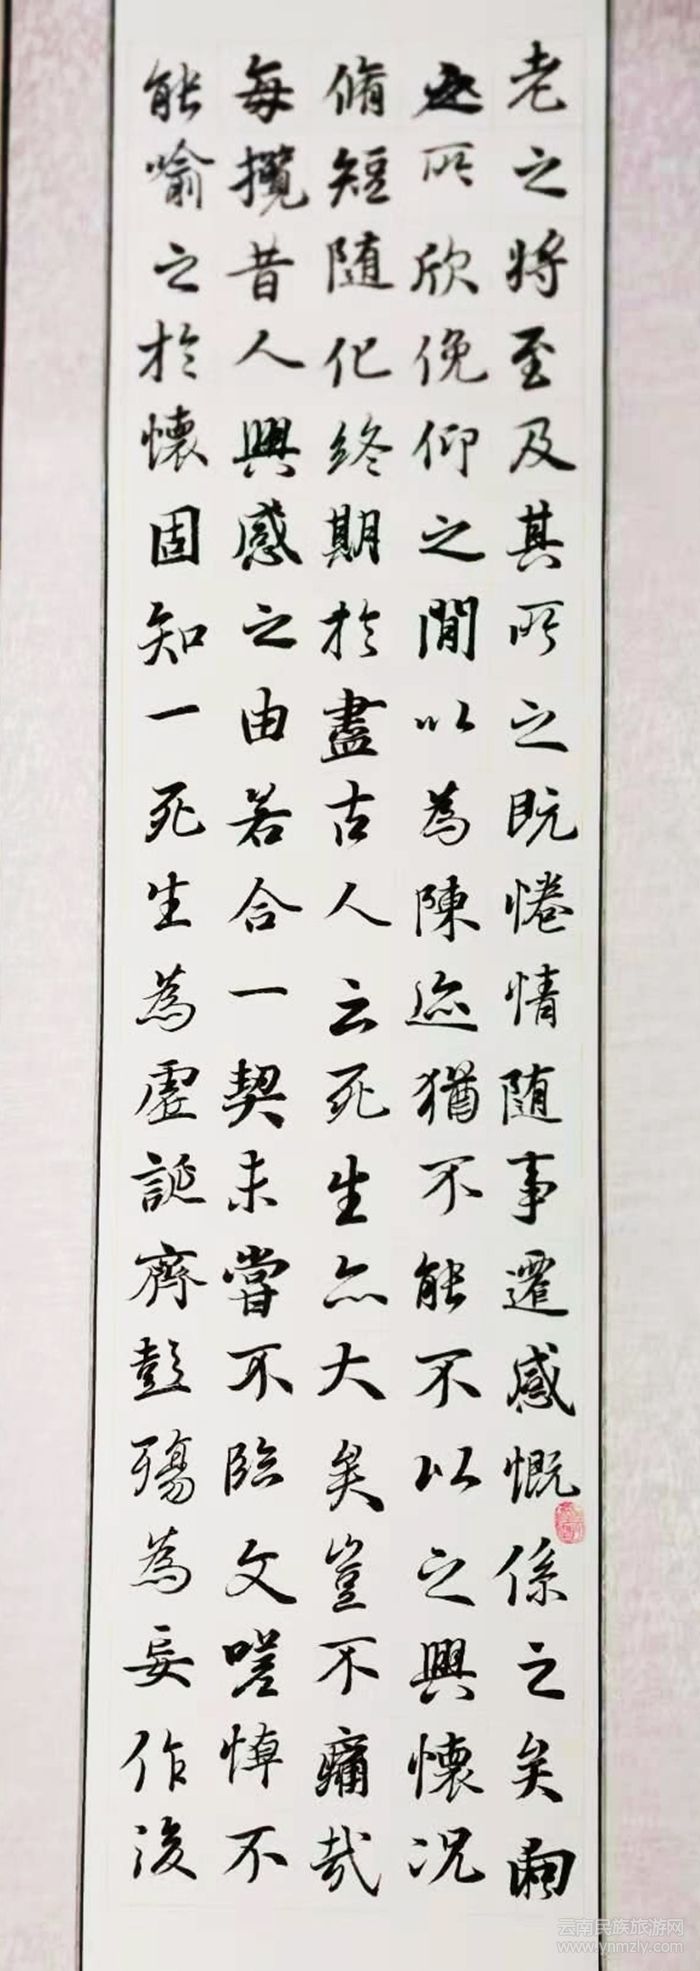 老之将至及其所之既惓情随事遷感慨係之矣向
之所欣俛仰之間以為陳迹猶不能不以之興懷况
脩短随化終期於盡古人云死生亦大矣豈不痛哉
每攬昔人興感之由若合一契未嘗不臨文嗟悼不
能喻之於懷固知一死生為虛誕齊彭殤為妄作後
云南民族旅游网
www.ynmzly.com